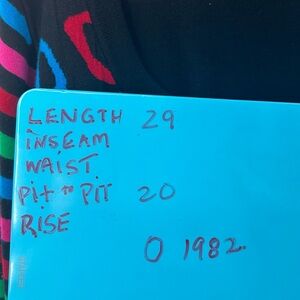 LENGTH 29
INSEAM
WAIST
Pit to PIT 20
RISE
O 1982